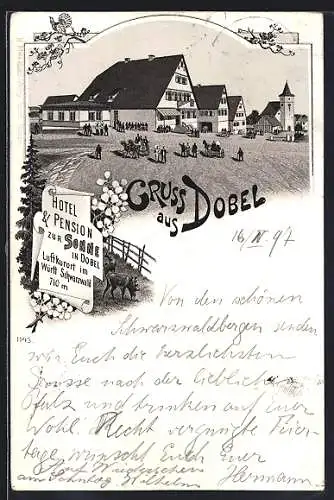 GRUSS
aus DOBEL
HOTEL
& PENSION
ZUR SONNE
IN DOBEL
Luftkurort im
Württ Schwarzwald
710 m
1145.
Von den schönen
Schwarzwaldbergen senden
wir Euch die herzlichsten
Grüsse nach der lieblichen
Pfalz und trinken auf Euer
Wohl. Recht vergnügte Feier-
tage wünscht Euch Euer
Hermann
Wilhelm